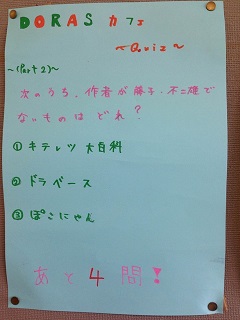 DORAS カフェ
~Quiz~
~(Part 2)~
次のうち、作者が藤子・不二雄で
ないものはどれ?
① キテレツ大百科
② ドラベース
③ ぽこにゃん
あと4問!